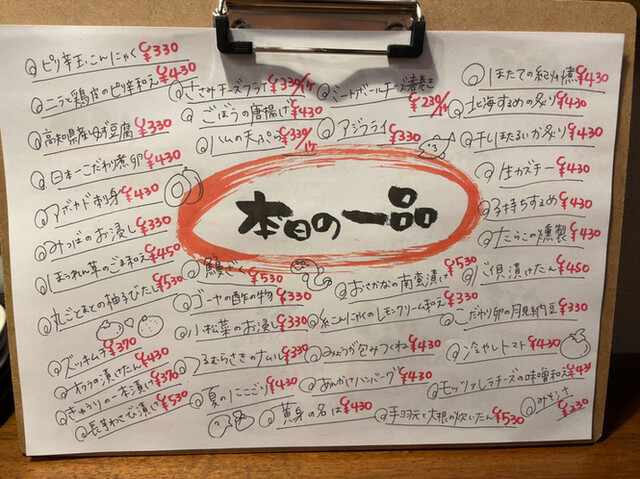 ピリ辛玉こんにゃく ¥330
ニラと鶏皮のピリ辛和え ¥430
高知県産ゆず豆腐 ¥330
日本一こだわり煮卵 ¥430
アボカド刺身 ¥430
みつばのお浸し ¥330
ほうれん草のごま和え ¥450
丸ごとトマトの柚子びたし ¥530
ズッキムチ ¥370
わさび漬けたん ¥430
きゅうりの一本漬け ¥370
長芋わさび漬け ¥530
ささみチーズフライ ¥330/1ヶ
ごぼうの唐揚げ ¥430
ハムの天ぷら ¥330/1ヶ
ミートボールチーズ春巻き ¥230/1ヶ
アジフライ ¥330
本日の一品
鰻ざく ¥530
ゴーヤの酢の物 ¥330
小松菜のお浸し ¥330
つるむらさきのナムル ¥330
夏のにこごり ¥430
黄身の名は ¥430
おさかなの南蛮漬け ¥530
糸こんにゃくのレモンクリーム和え ¥330
みょうが包みつくね ¥430
あんかけハンバーグ ¥430
手羽元と大根の炊いたん ¥530
ほたての紅い煮 ¥430
北海するめの炙り ¥430
干しほたるいか炙り ¥430
生カズチー ¥430
子持ちするめ ¥430
たらこの燻製 ¥430
ご倶漬けたん ¥450
こだわり卵の月見納豆 ¥330
冷やしトマト ¥430
モッツァレラチーズの味噌和え ¥430
みそシナ ¥230